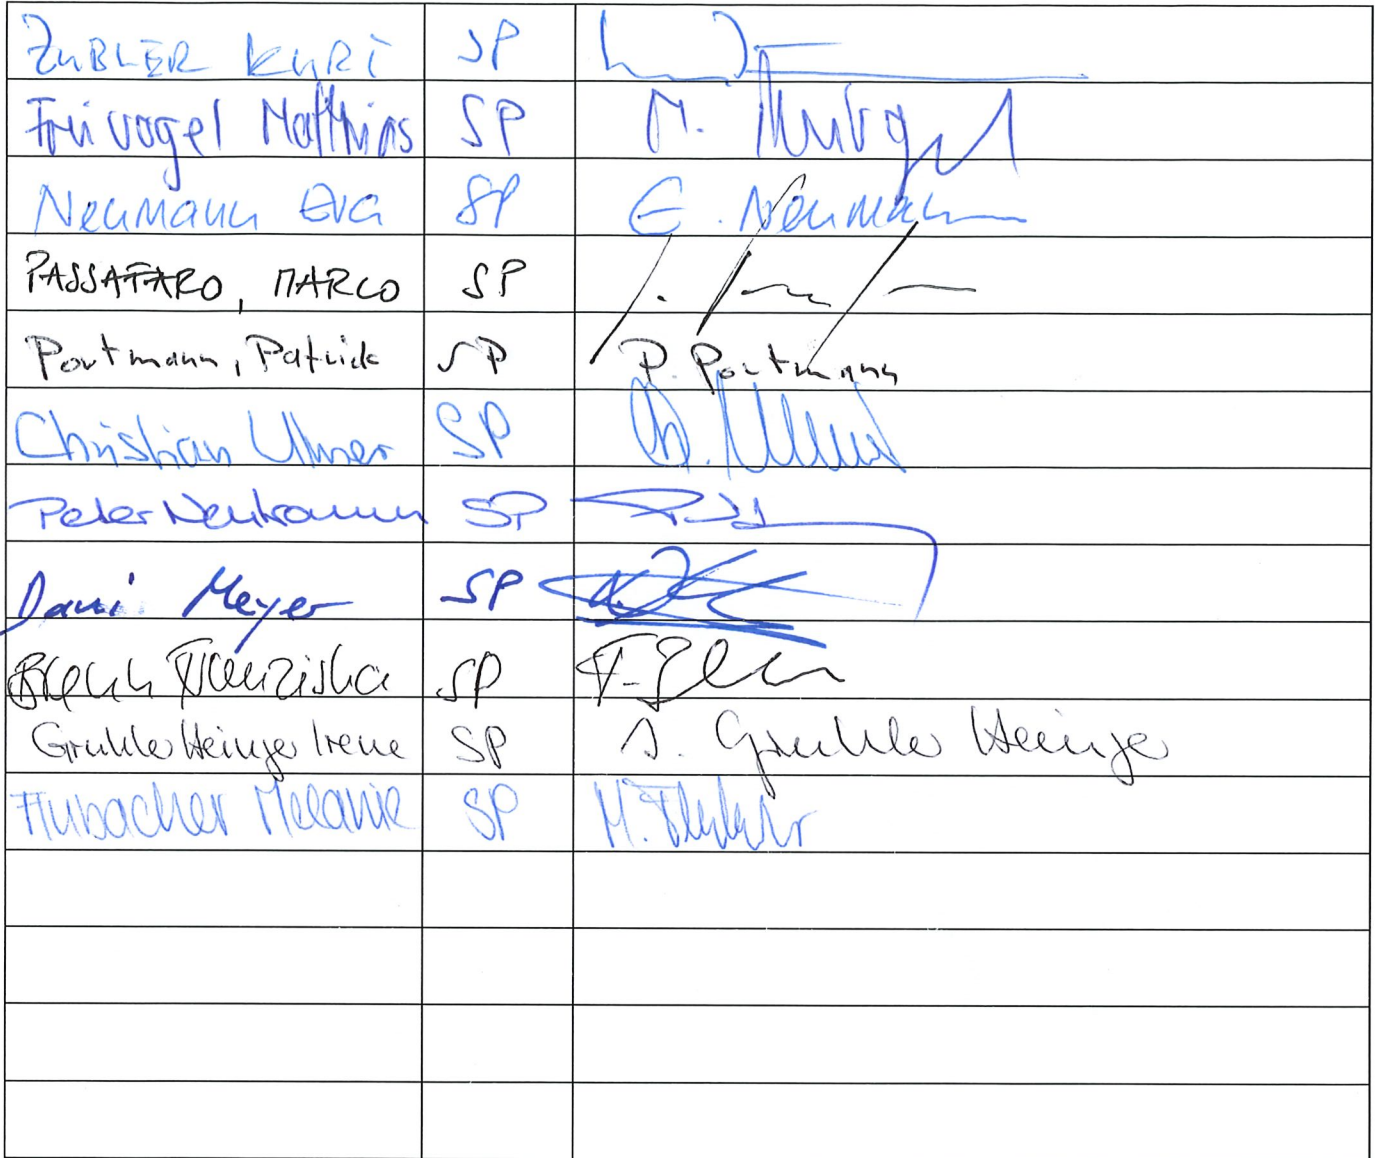 ZUBLER KURT SP
Freivogel Matthias SP M. Freivogel
Neumann Eva SP E. Neumann
PASSAFARO, MARCO SP
Portmann, Patrick SP P. Portmann
Christian Ulmer SP Ch. Ulmer
Peter Neukomm SP
Dani Meyer SP
Brenn Franziska SP F. Brenn
Gruhler Heinzer Irene SP I. Gruhler Heinzer
Flubacher Melanie SP M. Flubacher